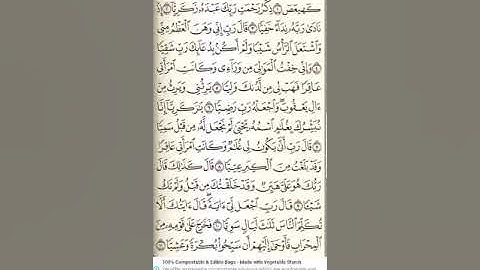 كٓهيعٓصٓ ١ ذِكْرُ رَحْمَتِ رَبِّكَ عَبْدَهُۥ زَكَرِيَّآ ٢ إِذْ
نَادَىٰ رَبَّهُۥ نِدَآءً خَفِيًّا ٣ قَالَ رَبِّ إِنِّى وَهَنَ ٱلْعَظْمُ مِنِّى
وَٱشْتَعَلَ ٱلرَّأْسُ شَيْبًا وَلَمْ أَكُنۢ بِدُعَآئِكَ رَبِّ شَقِيًّا
٤ وَإِنِّى خِفْتُ ٱلْمَوَٰلِىَ مِن وَرَآءِى وَكَانَتِ ٱمْرَأَتِى
عَاقِرًا فَهَبْ لِى مِن لَّدُنكَ وَلِيًّا ٥ يَرِثُنِى وَيَرِثُ مِنْ
ءَالِ يَعْقُوبَ وَٱجْعَلْهُ رَبِّ رَضِيًّا ٦ يَٰزَكَرِيَّآ إِنَّا
نُبَشِّرُكَ بِغُلَٰمٍ ٱسْمُهُۥ يَحْيَىٰ لَمْ نَجْعَل لَّهُۥ مِن قَبْلُ سَمِيًّا
٧ قَالَ رَبِّ أَنَّىٰ يَكُونُ لِى غُلَٰمٌ وَكَانَتِ ٱمْرَأَتِى عَاقِرًا
وَقَدْ بَلَغْتُ مِنَ ٱلْكِبَرِ عِتِيًّا ٨ قَالَ كَذَٰلِكَ قَالَ
رَبُّكَ هُوَ عَلَىَّ هَيِّنٌ وَقَدْ خَلَقْتُكَ مِن قَبْلُ وَلَمْ تَكُ
شَيْـًٔا ٩ قَالَ رَبِّ ٱجْعَل لِّىٓ ءَايَةً قَالَ ءَايَتُكَ أَلَّا
تُكَلِّمَ ٱلنَّاسَ ثَلَٰثَ لَيَالٍ سَوِيًّا ١٠ فَخَرَجَ عَلَىٰ قَوْمِهِۦ مِنَ
ٱلْمِحْرَابِ فَأَوْحَىٰٓ إِلَيْهِمْ أَن سَبِّحُوا۟ بُكْرَةً وَعَشِيًّا ١١
100% Compostable & Edible Bags - Made with Vegetable Starch